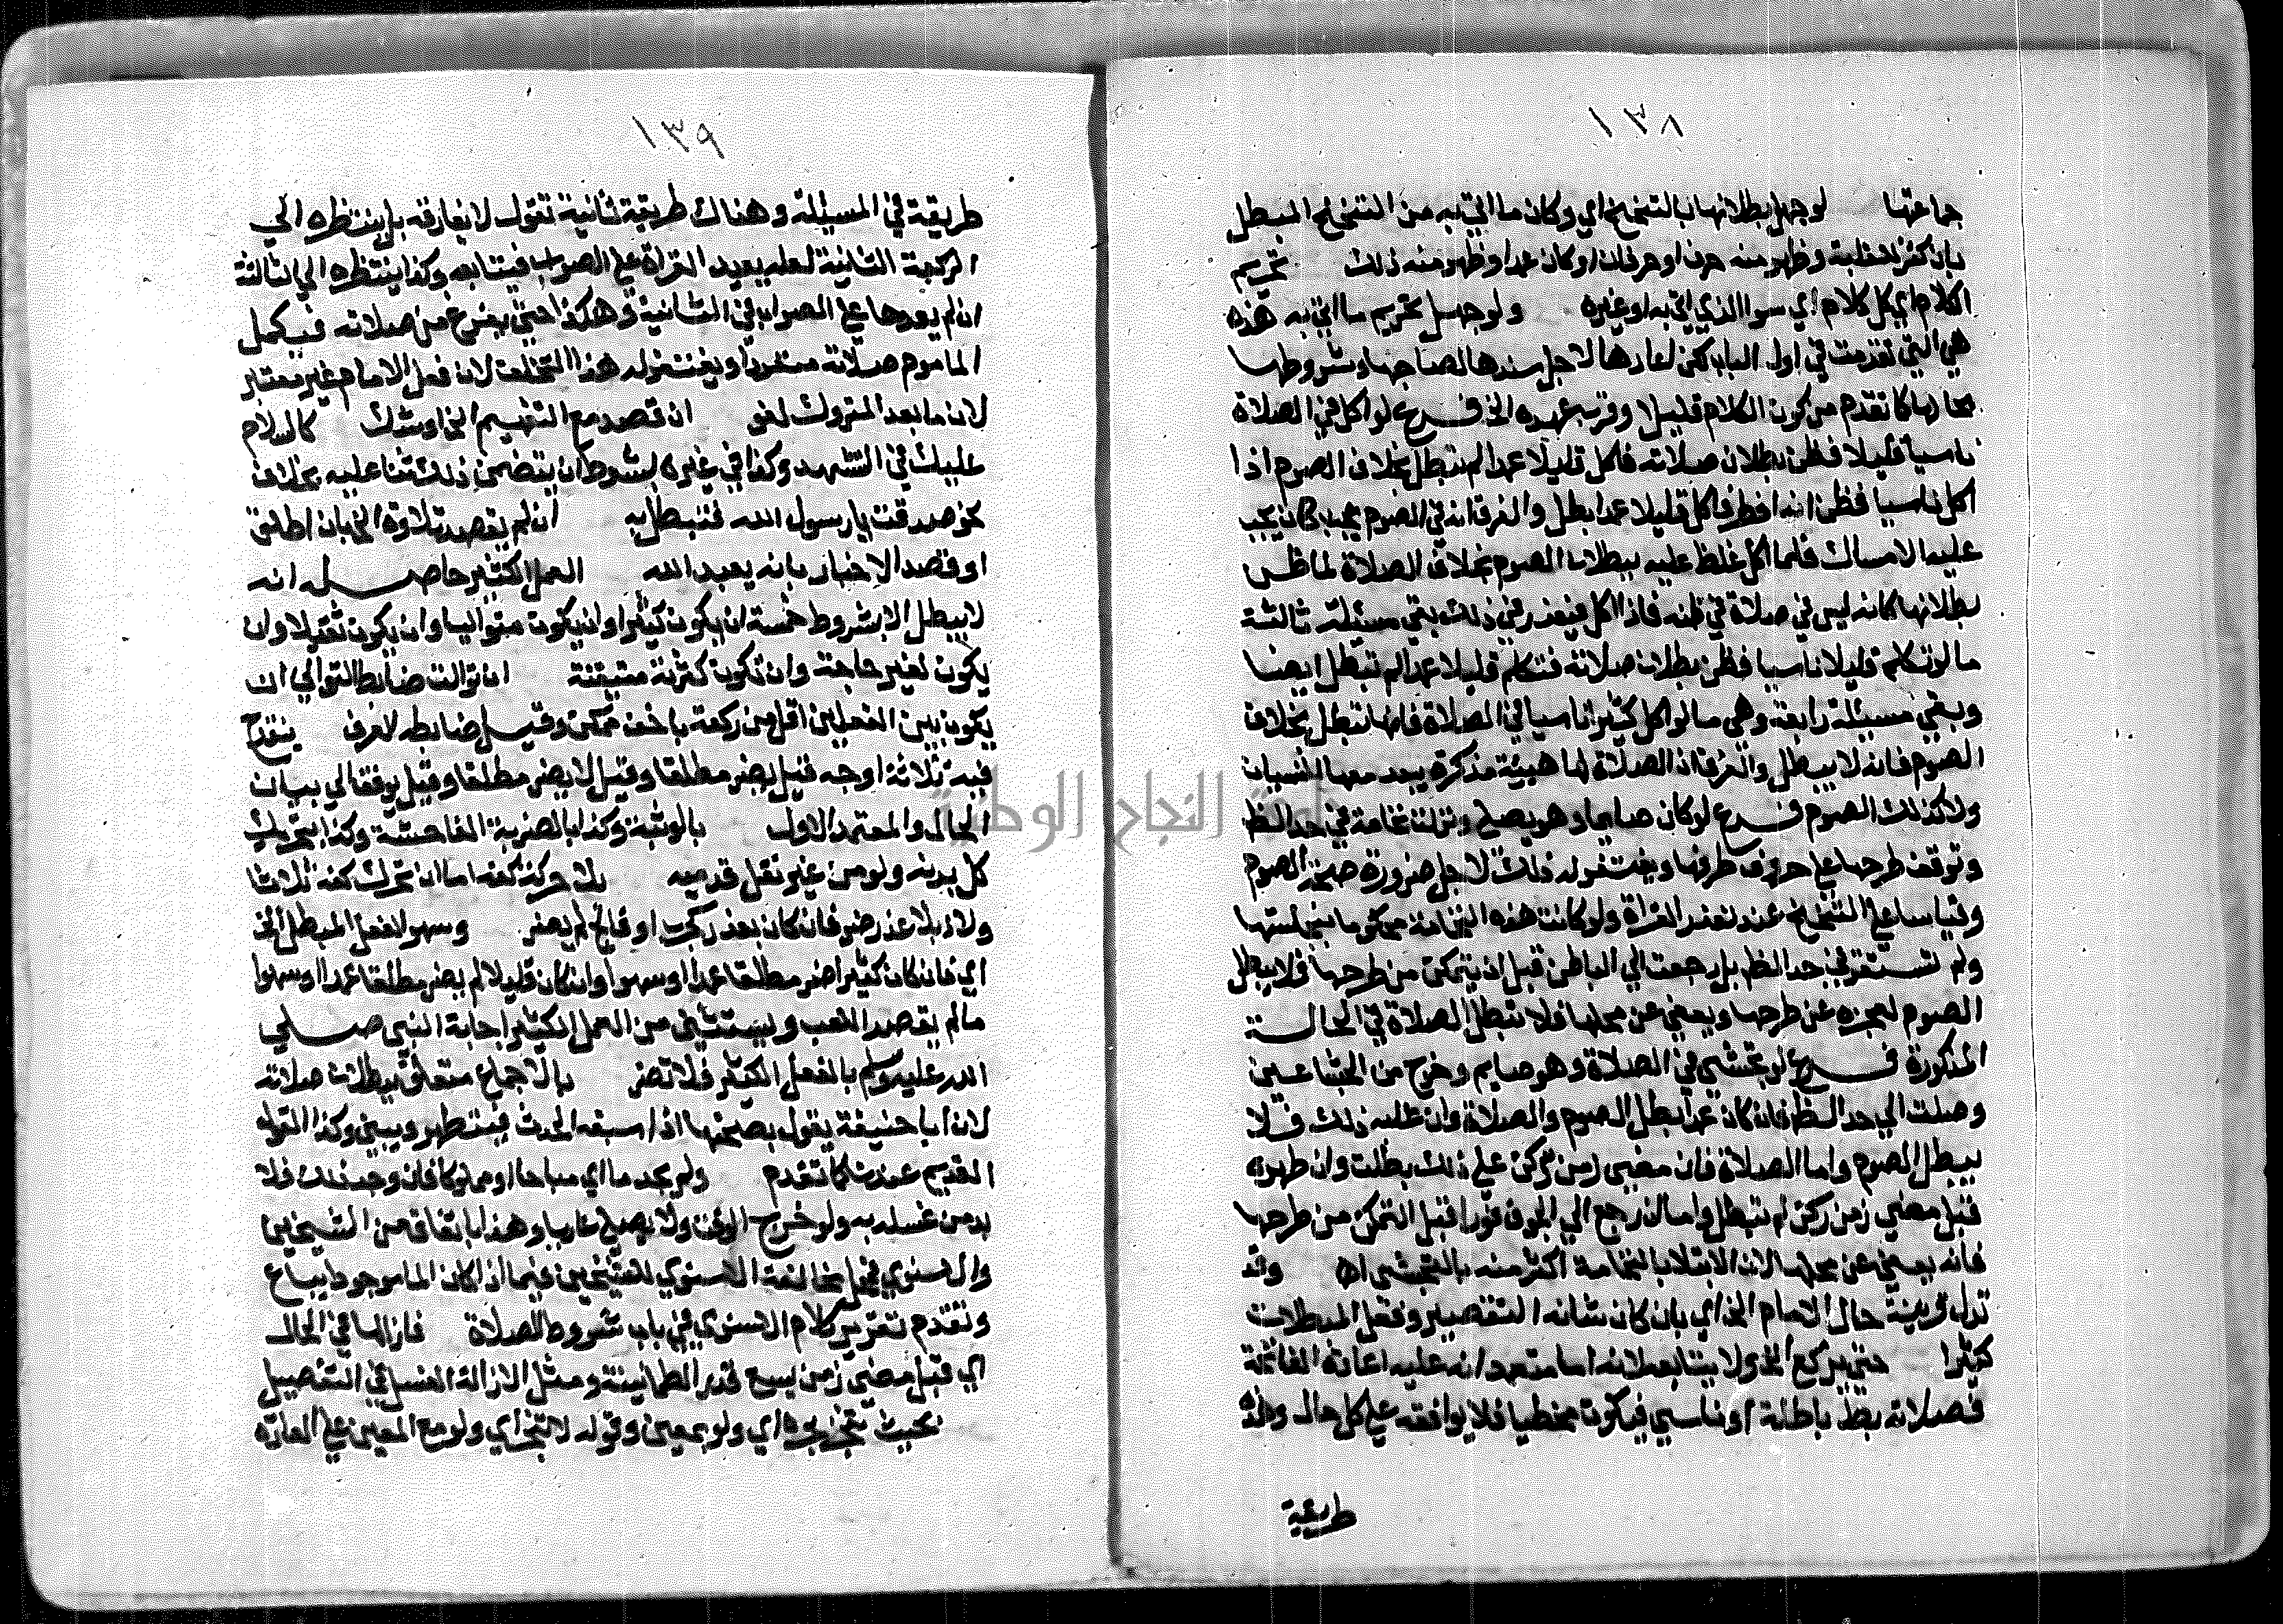 ١٣٨
جماعتها لو جهل بطلانها بالتنحنح اي وكان ما اتي به من التنحنح المبطل
بان كثر لغلبة وظهر منه حرف او حرفان او كان عمدا وظهر منه ذلك تحريم
الكلام اي كل كلام اي سوا الذي اتي به او غيره ولو جهل تحريم ما اتي به هذه
هي التي تقدمت في اول الباب لكن اعادها لاجل سندها لصاحبها وشروطها
بحالها كما تقدم من كون الكلام قليلا وقرب عهده الخ فرع لو اكل في الصلاة
ناسيا قليلا فظن بطلان صلاته فاكل قليلا عمدا لم تبطل بخلاف الصوم اذا
اكل ناسيا فظن انه افطر فاكل قليلا عمدا بطل والفرق انه في الصوم يجب كان يجب
عليه الامساك فلما اكل غلظ عليه ببطلان الصوم بخلاف الصلاة لما ظن
بطلانها كانه ليس في صلاة في ظنه فاذا اكل فيعذر في ذلك بقي مسئلة ثالثة
ما لو تكلم قليلا ناسيا فظن بطلان صلاته فتكلم قليلا عمدا لم تبطل ايضا
وبقي مسئلة رابعة وهي ما لو اكل كثيرا ناسيا في الصلاة فانها تبطل بخلاف
الصوم فانه لا يبطل والفرق اذ الصلاة لها هيئة مذكرة يبعد معها النسيان
ولا كذلك الصوم فرع لو كان صايما وهو يصلي ونزلت نخامة في حد الظ
وتوقف طرحها على حروف طرفها ويغتفر له ذلك لاجل ضرورة صحة الصوم
وقياسا على التنحنح عند تعذر القراة ولو كانت هذه النخامة محكوما بنجاستها
ولم تستقر في حد الظ بل رجعت الي الباطن قبل ان يتمكن من طرحها فلا يبطل
الصوم لعجزه عن طرحها ويعفي عن محلها فلا تبطل الصلاة في الحالة
المذكورة فرع لو تجشي في الصلاة وهو صايم وخرج من الجشا عين
وصلت الي حد الظ فان كان عمدا بطل الصوم والصلاة وان غلبه ذلك فلا
يبطل الصوم واما الصلاة فان مضي زمن ركن على ذلك بطلت وان طهره
قبل مضي زمن ركن لم تبطل واما ان رجع الي الجوف فورا قبل التمكن من طرحها
فانه يعفي عن محلها لان الابتلا بالنخامة اكثر منه بالتجشي اه وقد
تدل قرينة حال الامام الخ اي بان كان شانه التقصير وفعل المبطلات
كثيرا حتي يركع الخ ولا يتابعه لانه اما متعمد انه عليه اعادة الفاتحة
فصلاته بطلـ باطلة او ناسي فيكون مخطيا فلا يوافقه على كل حال وهذه
طريقة
١٣٩
طريقة في المسئلة وهناك طريقة ثانية تقول لا يفارقه بل ينتظره الي
الركعة الثانية لعله يعيد القراة على الصواب فيتابعه وكذا ينتظره الي الثالثة
ان لم يعدها على الصواب في الثانية وهكذا حتي يفرغ من صلاته فيكمل
الماموم صلاته منفردا ويغتفر له هذا التخلف لان فعل الامام غير معتبر
لان ما بعد المتروك لغو ان قصد مع التفهيم الخ او شك كالسلام
عليك في التشهد وكذا في غيره بشرط ان يتضمن ذلك ثنا عليه بخلاف
نحو صدقت يا رسول الله فتبطل به ان لم يقصد تلاوة الخ بان اطلق
او قصد الاخبار بانه يعبد الله العمل الكثير حاصله انه
لا يبطل الا بشروط خمسة ان يكون كثيرا وان يكون متواليا وان يكون ثقيلا وان
يكون لغير حاجة وان تكون كثرته متيقنة ان توالت ضابط التوالي ان
يكون بين الفعلين اقل من ركعة باخف ممكن وقيل ضابطه العرف ينقدح
فيه ثلاثة اوجه قيل يضر مطلقا وقيل لا يضر مطلقا وقيل يوقف الي بيان
الحال والمعتمد الاول بالوثبة وكذا بالضربة الفاحشة وكذا بتحريك
كل بدنه ولو من غير نقل قدميه بلا حركة كفه اما ان تحرك كفه ثلاثا
ولاء بلا عذر ضر فان كان بعذر كجرب او فالج لم يضر وسهو الفعل المبطل الخ
اي فان كان كثيرا ضر مطلقا عمدا وسهوا وان كان قليلا لم يضر مطلقا عمدا وسهوا
ما لم يقصد اللعب ويستثني من العمل الكثير اجابة النبي صلي
الله عليه وسلم بالفعل الكثير فلا تضر بالاجماع متعلق ببطلان صلاته
لان ابا حنيفة يقول بصحتها اذا سبقه الحدث فيتطهر ويبني وكذا القول
القديم عندنا كما تقدم ولم يجد ما اي مباحا او مملوكا فان وجب ذلك فلا
بد من غسله به ولو خرج الوقت ولا يصلي عاريا وهذا باتفاق من الشيخين
والاسنوي فيما خالفة الاسنوي للشيخين فيما اذا كان الما موجودا يباع
وتقدم تقرير كلام الاسنوي في باب شروط الصلاة فازالها في الحال
اي قبل مضي زمن يسع قدر الطمانينة ومثل الازالة الغسل في التفصيل
بحيث تتحز بجره اي ولو بمعين وقوله لا تتجز اي ولو مع المعين على المعاره